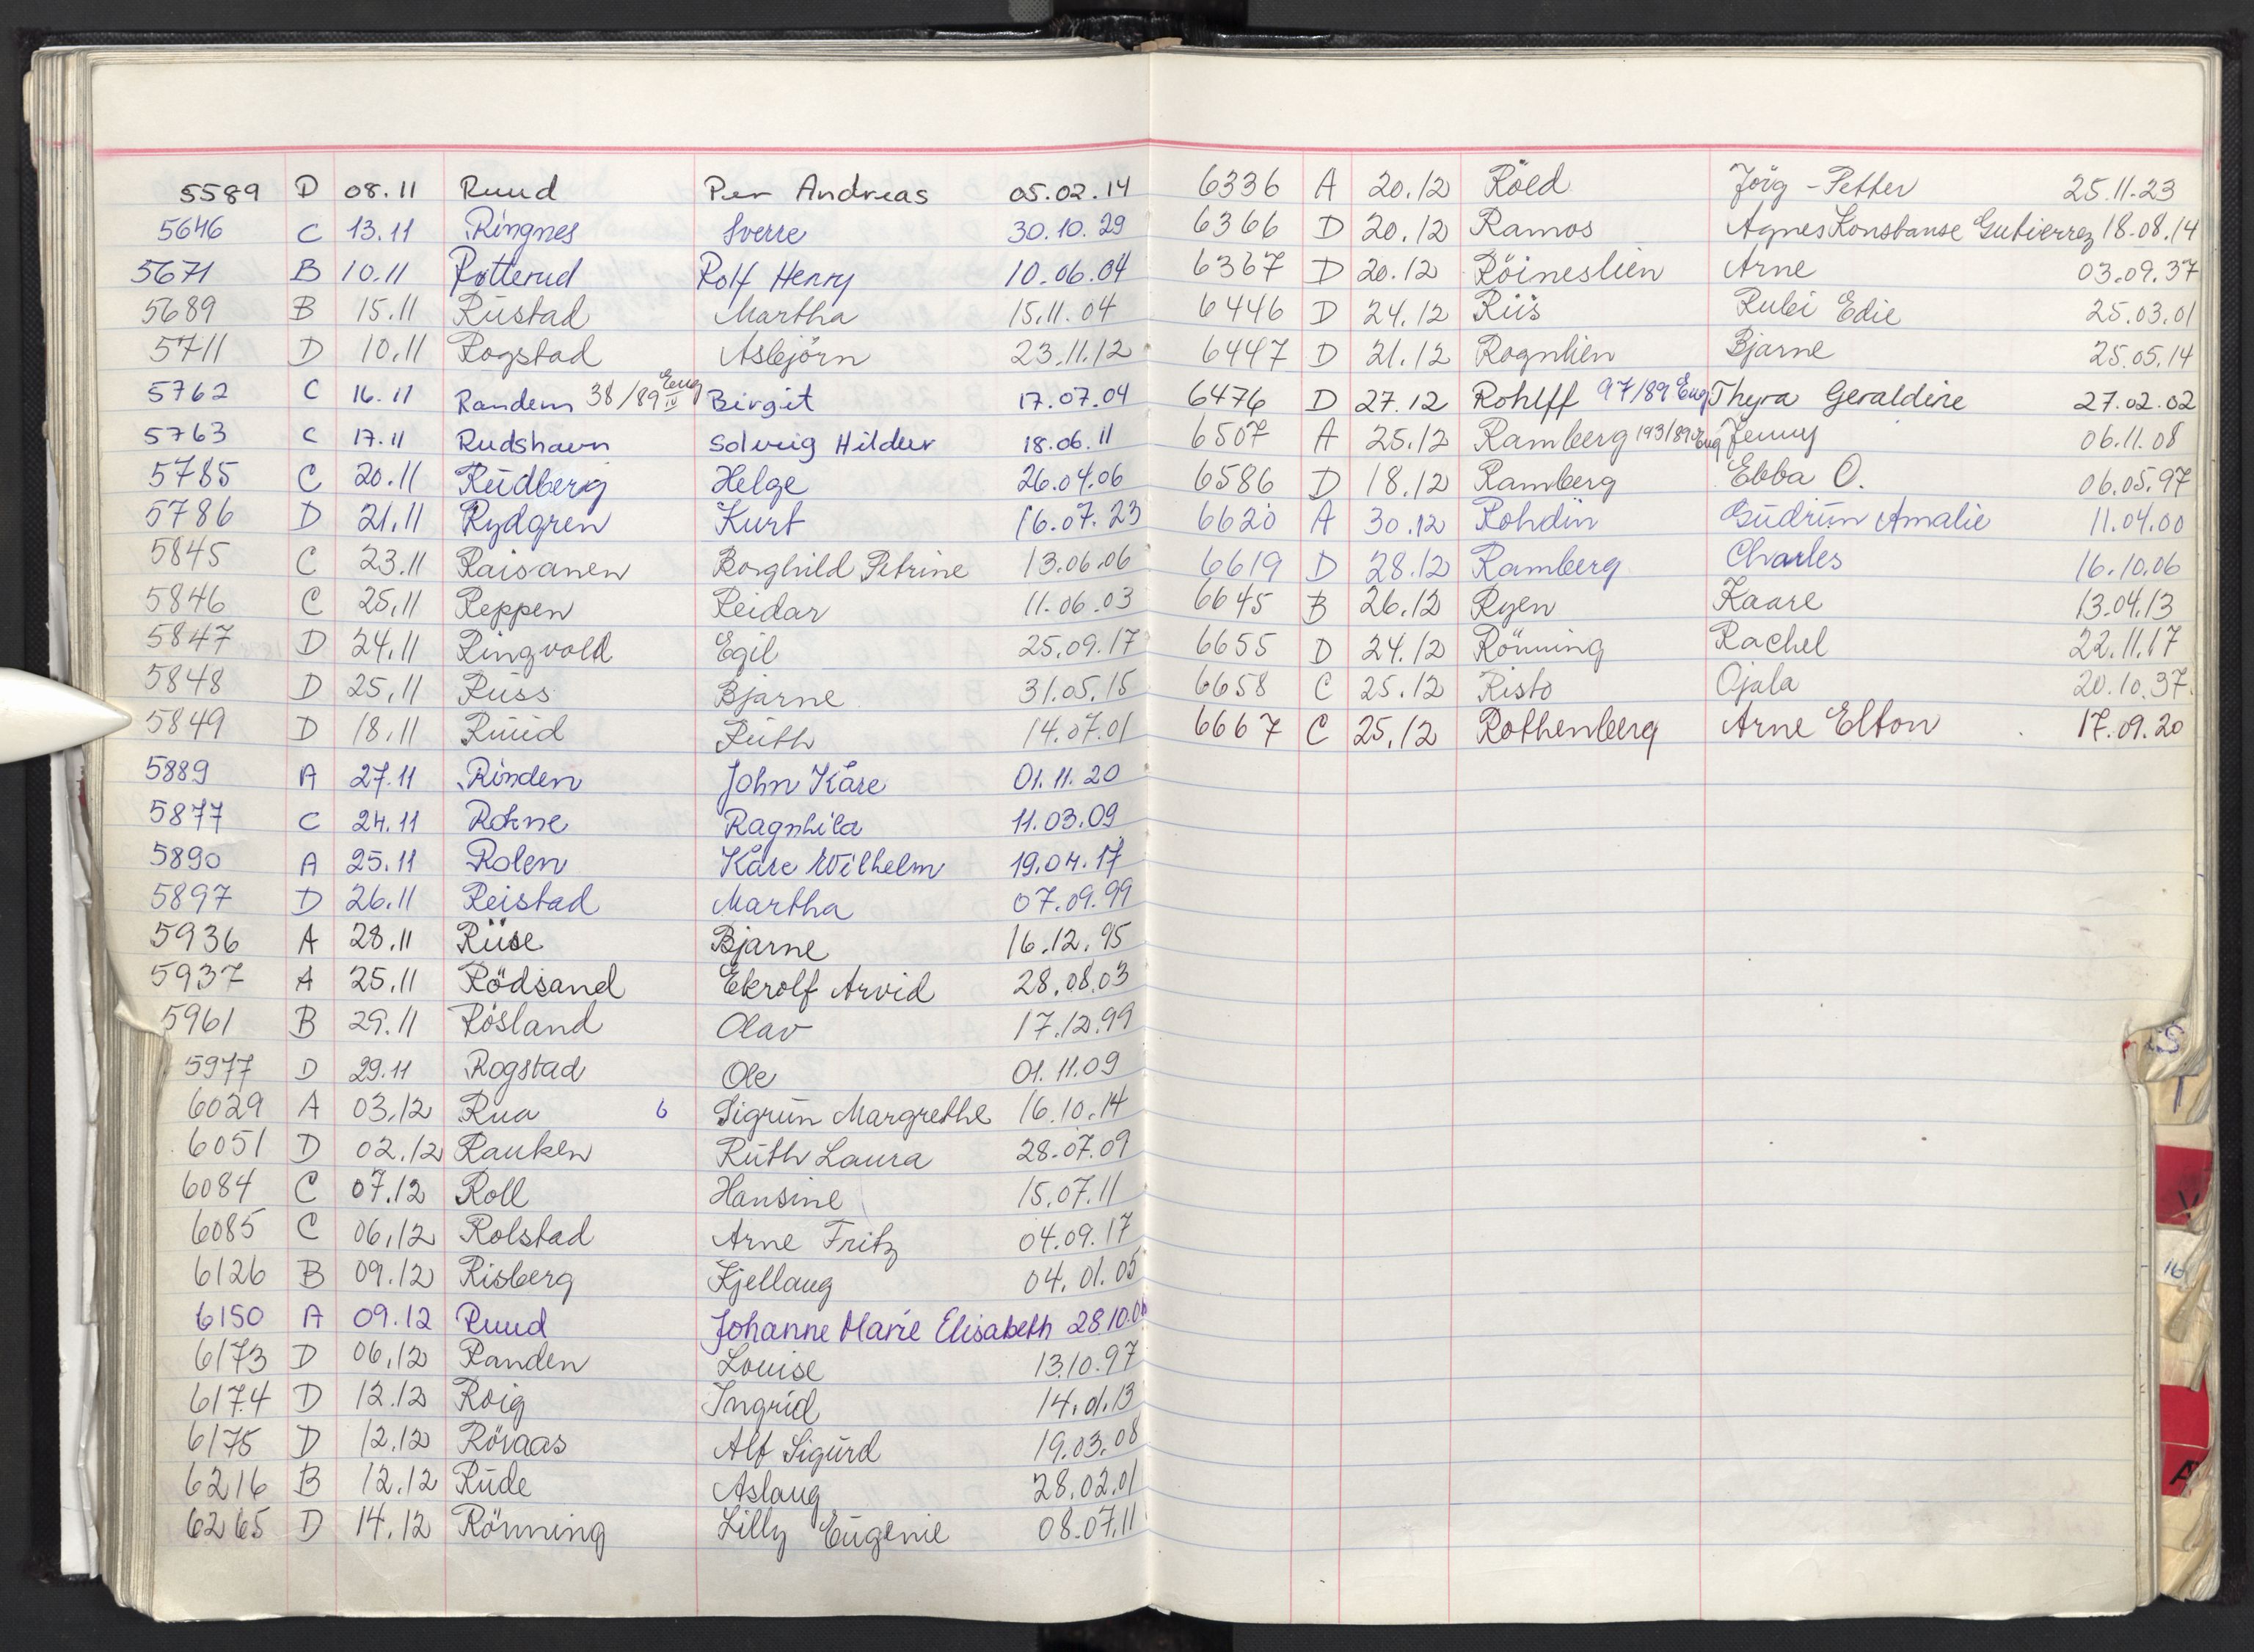 5589 D 08.11 Ruud Per Andreas 05.02.14
5646 C 13.11 Ringnes Sverre 30.10.29
5671 B 10.11 Rotterud Rolf Henry 10.06.04
5689 B 15.11 Rustad Martha 15.11.04
5711 D 10.11 Rogstad Asbjörn 23.11.12
5762 C 16.11 Randem 38/89 Eug IV Birgit 17.07.04
5763 C 17.11 Rudshavn Solveig Hildur 18.06.11
5785 C 20.11 Rudberg Helge 26.04.06
5786 D 21.11 Rydgren Kurt 16.07.23
5845 C 23.11 Raisanen Borghild Petrine 13.06.06
5846 C 25.11 Reppen Reidar 11.06.03
5847 D 24.11 Ringvold Egil 25.09.17
5848 D 25.11 Russ Bjarne 31.05.15
5849 D 18.11 Ruud Ruth 14.07.01
5889 A 27.11 Rinden John Kåre 01.11.20
5877 C 24.11 Rokne Ragnhild 11.03.09
5890 A 25.11 Rolen Kåre Wilhelm 19.04.17
5897 D 26.11 Reistad Martha 07.09.99
5936 A 28.11 Riise Bjarne 16.12.95
5937 A 25.11 Rödsand Ekrolf Arvid 28.08.03
5961 B 29.11 Rösland Olav 17.12.99
5977 D 29.11 Rogstad Ole 01.11.09
6029 A 03.12 Rua 6 Sigrun Margrethe 16.10.14
6051 D 02.12 Rauken Ruth Laura 28.07.09
6084 C 07.12 Roll Hansine 15.07.11
6085 C 06.12 Rolstad Arne Fritz 04.09.17
6126 B 09.12 Risberg Kjellaug 04.01.05
6150 A 09.12 Ruud Johanne Marie Elisabeth 28.10.06
6173 D 06.12 Randen Louise 13.10.97
6174 D 12.12 Roig Ingrid 14.01.13
6175 D 12.12 Röraas Alf Sigurd 19.03.08
6216 B 12.12 Rude Aslaug 28.02.01
6265 D 14.12 Rönning Lilly Eugenie 08.07.11
6336 A 20.12 Röed Jörg - Petter 25.11.23
6366 D 20.12 Ramos Agnes Konstanse Gutierrez 18.08.14
6367 D 20.12 Röineslien Arne 03.09.37
6446 D 24.12 Riis Rubi Edie 25.03.01
6447 D 21.12 Rognlien Bjarne 25.05.14
6476 D 27.12 Rohlff 97/89 Eug Thyra Geraldine 27.02.02
6507 A 25.12 Ramberg 193/89 Eug Jenny 06.11.08
6586 D 18.12 Ramberg Ebba O. 06.05.97
6620 A 30.12 Rohdin Gudrun Amalie 11.04.00
6619 D 28.12 Ramberg Charles 16.10.06
6645 B 26.12 Ryen Kaare 13.04.13
6655 D 24.12 Rönning Rachel 22.11.17
6658 C 25.12 Risto Ojala 20.10.37.
6667 C 25.12 Rothenberg Arne Elton 17.09.20
S
T
V
A